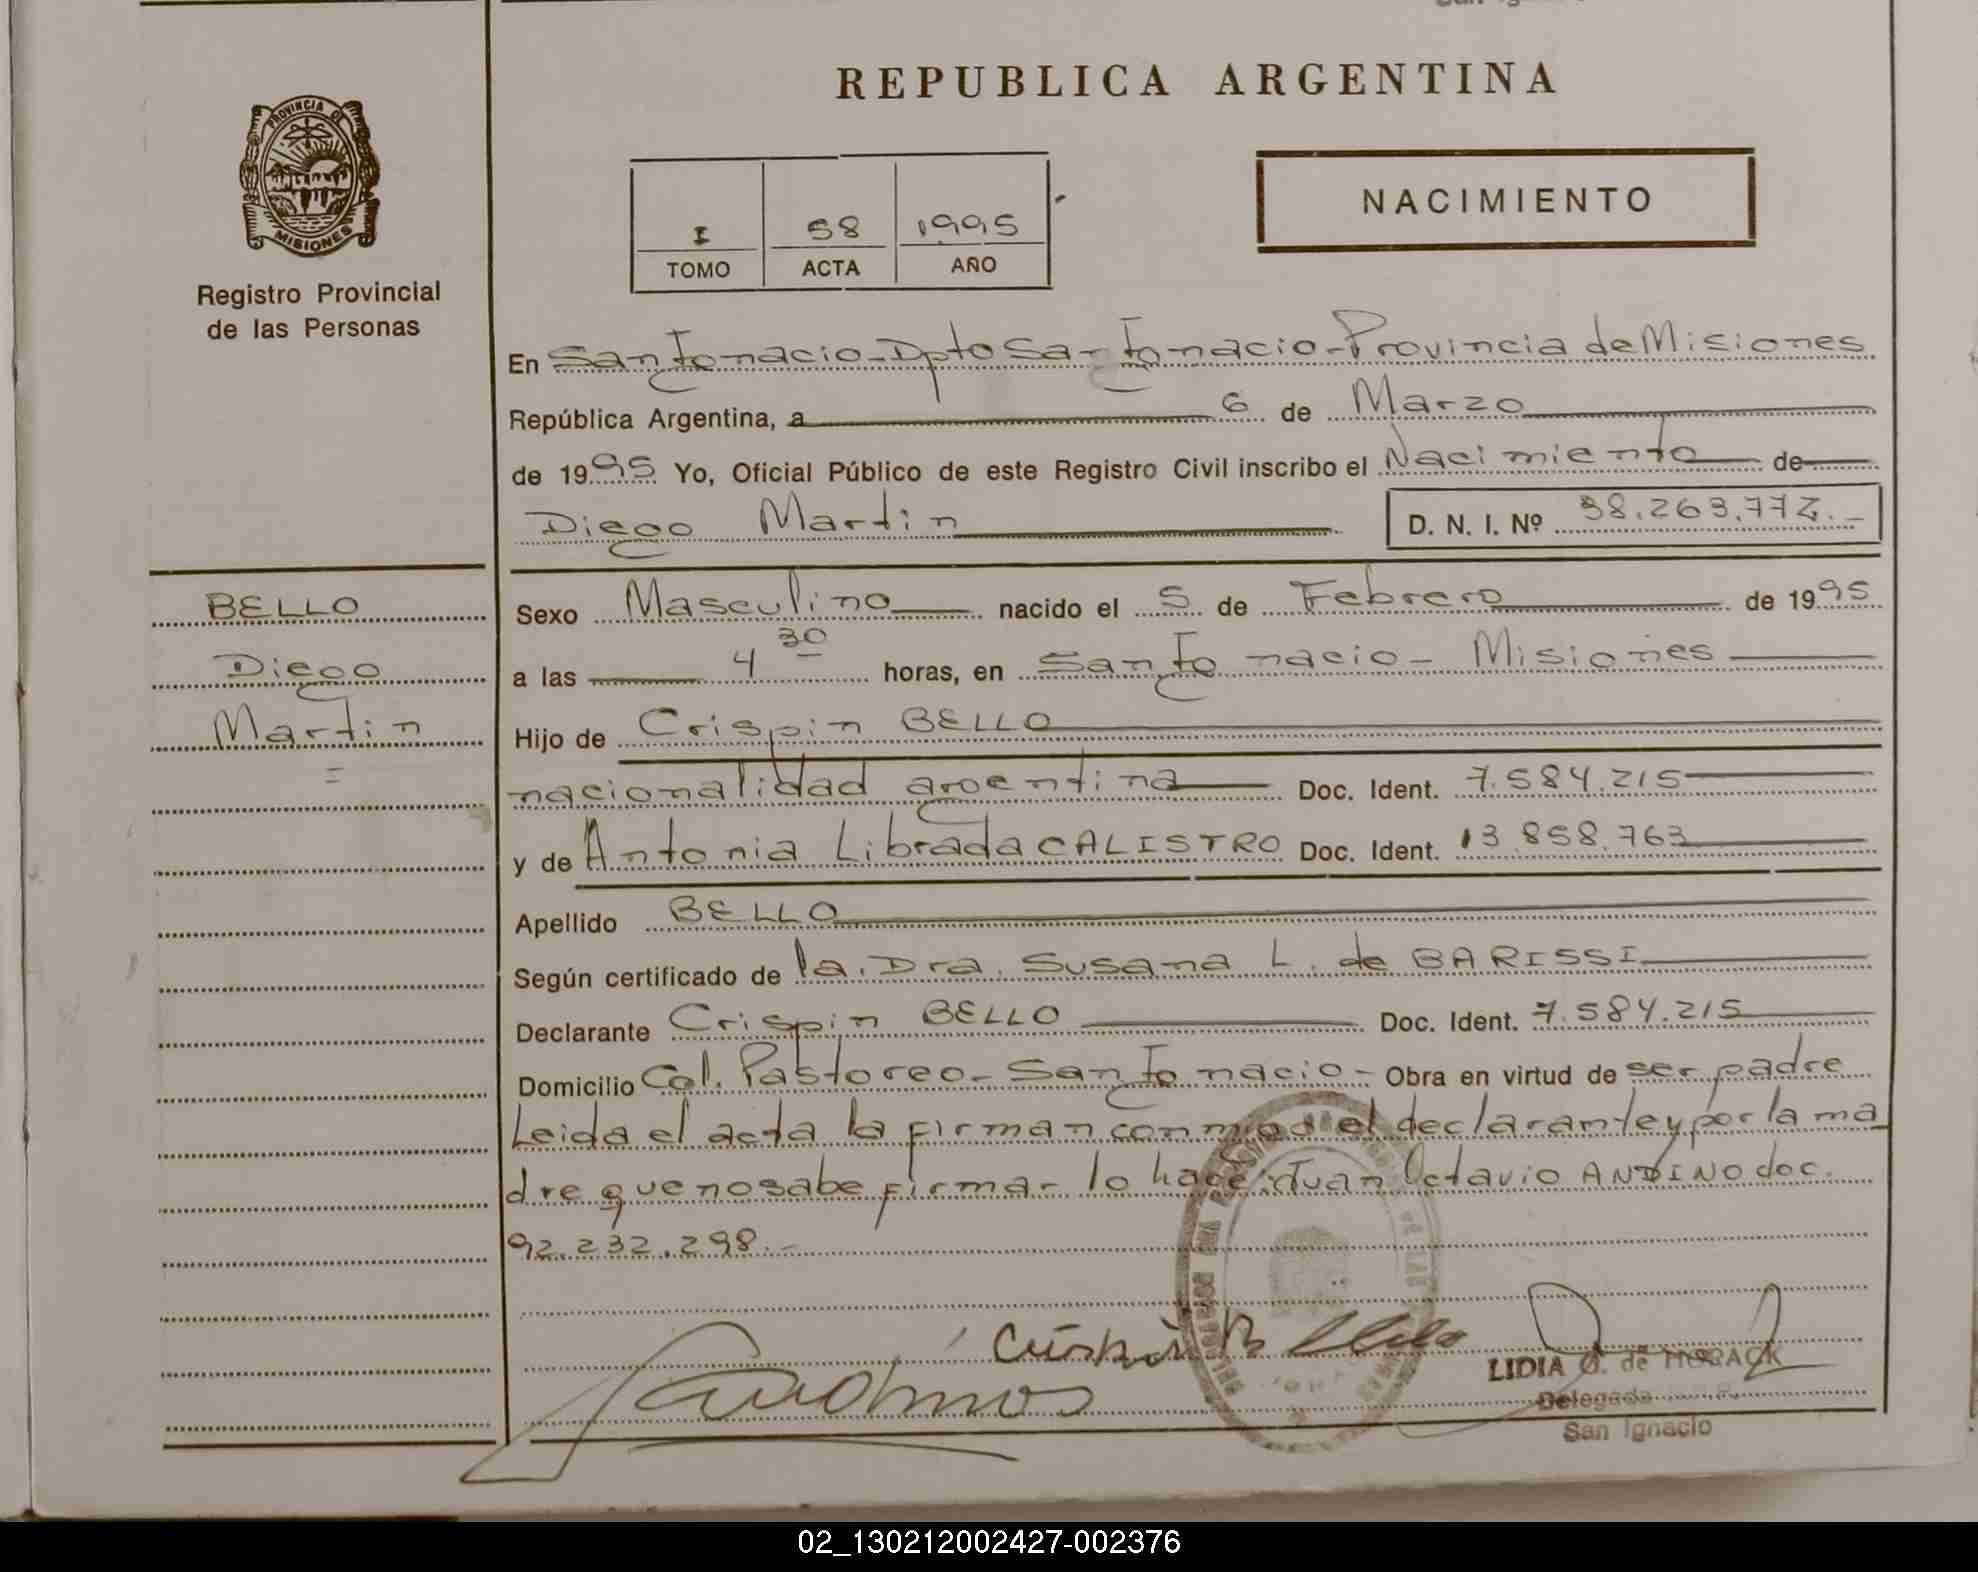 REPUBLICA ARGENTINA
PROVINCIA DE
MISIONES
Registro Provincial
de las Personas
I 58 1995
TOMO ACTA AÑO
NACIMIENTO
En San Ignacio - Dpto San Ignacio - Provincia de Misiones
República Argentina, a 6 de Marzo
de 1995 Yo, Oficial Público de este Registro Civil inscribo el Nacimiento de
Diego Martin D. N. I. Nº 38.263.772.-
BELLO
Diego
Martin
Sexo Masculino nacido el 5 de Febrero de 1995
a las 4 30 horas, en San Ignacio - Misiones
Hijo de Crispin BELLO
nacionalidad argentina Doc. Ident. 7.584.215
y de Antonia Librada CALISTRO Doc. Ident. 13.858.763
Apellido BELLO
Según certificado de la. Dra. Susana L. de BARISSI
Declarante Crispin BELLO Doc. Ident. 7.584.215
Domicilio Col. Pastoreo - San Ignacio - Obra en virtud de ser padre
Leida el acta la firman conmigo el declarante y por la ma
dre que no sabe firmar lo hace: Juan Octavio ANDINO doc.
92.232.298.-
LIDIA G. de
Delegada
San Ignacio
02_130212002427-002376